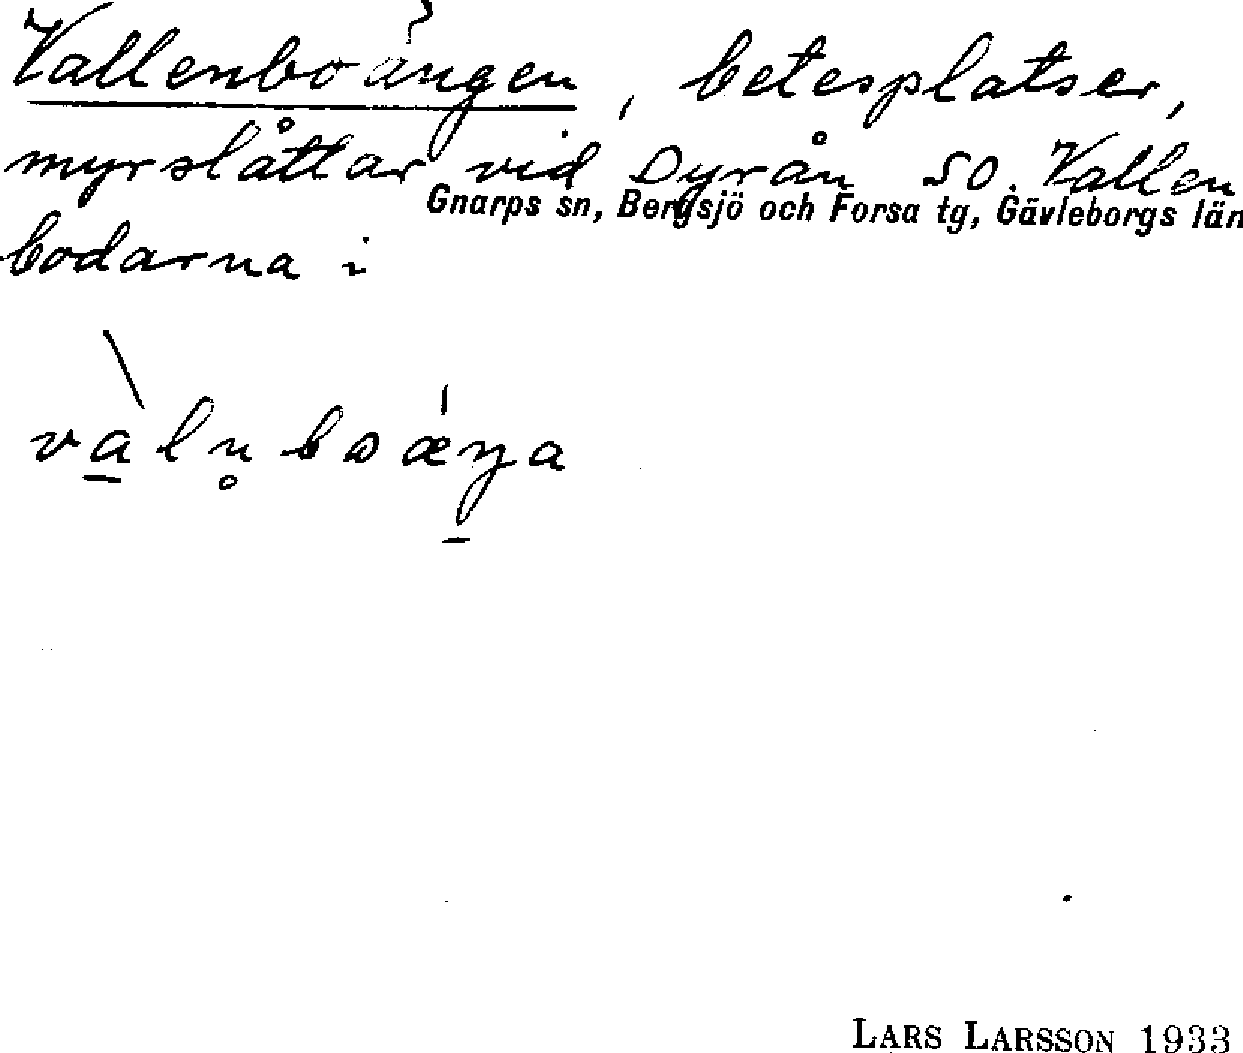 Vallenboängen, betesplatser,
myrslåttar vid Dyrån SO. Vallen
Gnarps sn, Bergsjö och Forsa tg, Gävleborgs län
bodarna i
vàln̥boǽŋa
LARS LARSSON 1933